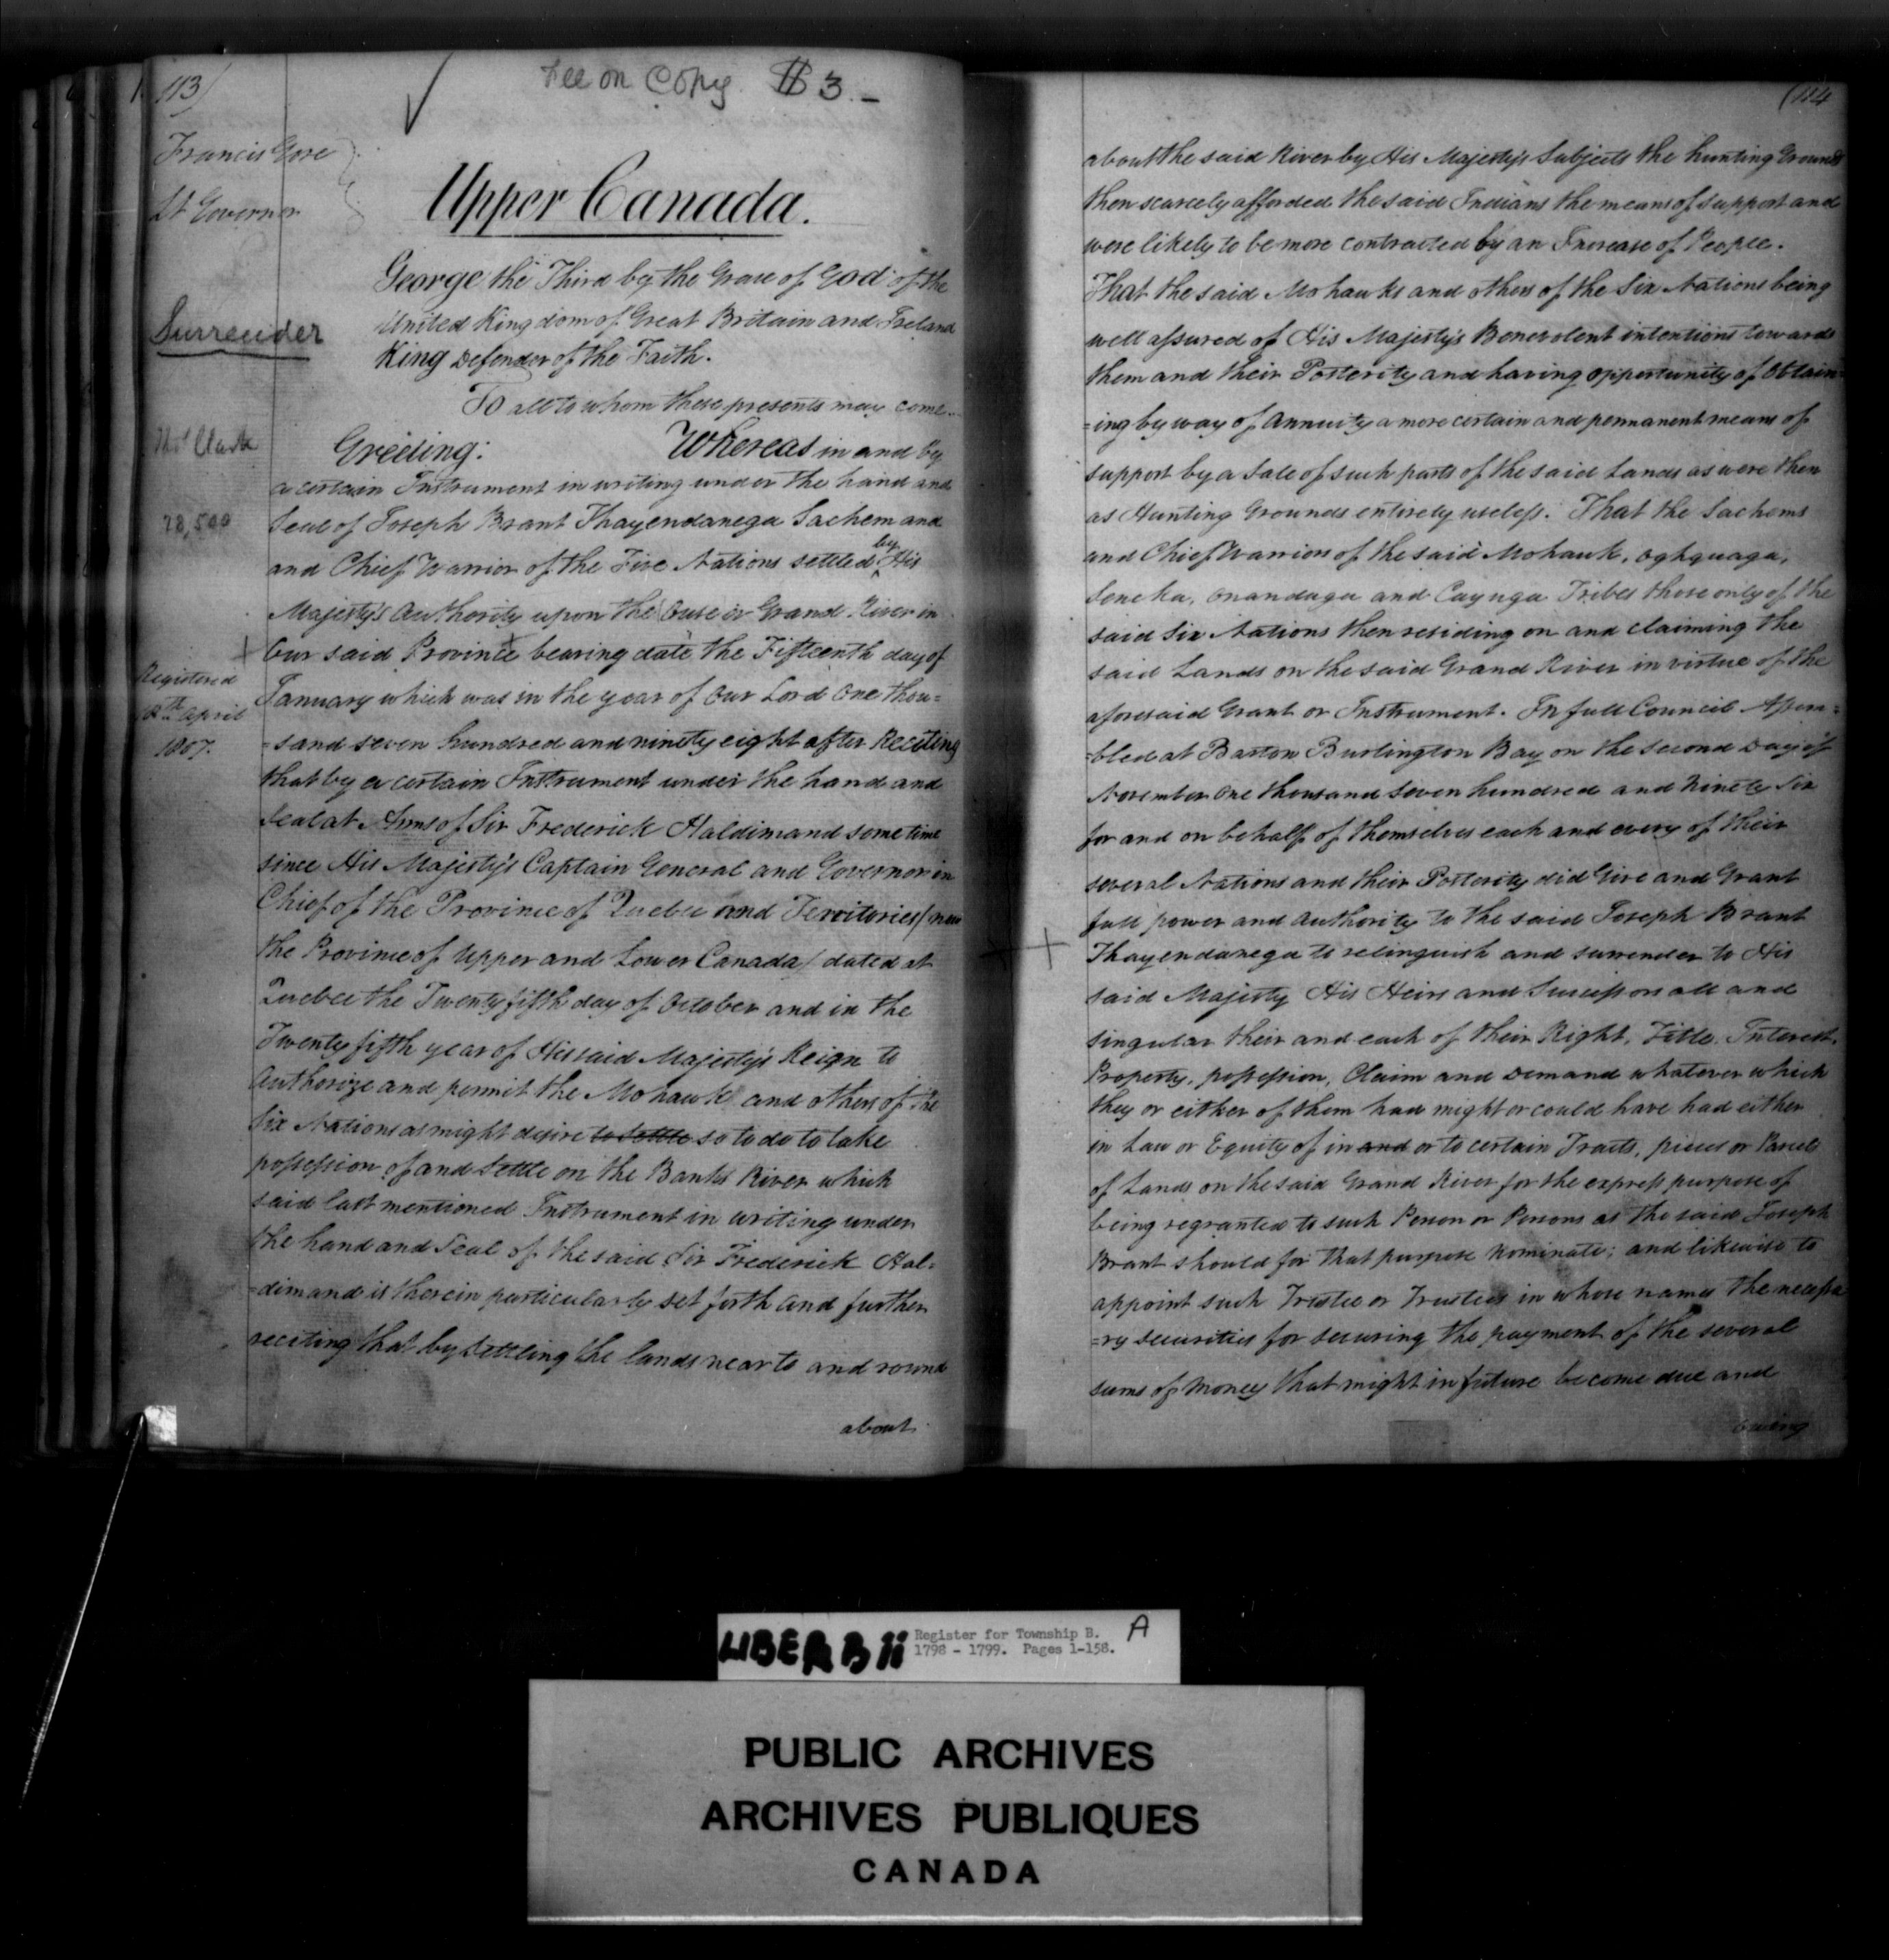 113/
Fee on Copy $3.-
Francis Gore
Lt Governor
Upper Canada.
George the Third by the Grace of God of the
United Kingdom of Great Britain and Ireland
King Defender of the Faith.
Surrender
To all to whom these presents may come..
Thos Clark
Greeting: Whereas in and by
a certain Instrument in writing under the hand and
Seal of Joseph Brant Thayendanega Sachem and
and Chief Warrior of the Five Nations settled by His
Majesty's Authority upon the Ouse or Grand River in
Our said Province bearing date the Fifteenth day of
January which was in the year of Our Lord One thou=
=sand seven hundred and ninety eight after Reciting
Registered
April
1807.
that by a certain Instrument under the hand and
Seal at Arms of Sir Frederick Haldimand some time
since His Majesty's Captain General and Governor in
Chief of the Province of Quebec and Territories/now
the Province of Upper and Lower Canada/ dated at
Quebec the Twenty fifth day of October and in the
Twenty fifth year of His said Majesty's Reign to
Authorize and permit the Mohawk and others of the
Six Nations as might desire to settle so to do to take
possession of and Settle on the Banks River which
said last mentioned Instrument in writing under
the hand and Seal of the said Sir Frederick Hal=
=dimand is therein particularly set forth and further
reciting that by Settling the lands near to and round
about
(114
about the said River by His Majesty's Subjects the hunting Grounds
then scarcely afforded the said Indians the means of support and
were likely to be more contracted by an Increase of People.
That the said Mohawks and others of the Six Nations being
well assured of His Majesty's Benevolent intentions towards
them and their Posterity and having opportunity of Obtain=
=ing by way of Annuity a more certain and permanent means of
support by a Sale of such parts of the said Lands as were then
as Hunting Grounds entirely useless. That the Sachems
and Chief Warriors of the said Mohawk, Oghquaga,
Seneka, Onandaga and Cayuga Tribes those only of the
said Six Nations then residing on and claiming the
said Lands on the said Grand River in virtue of the
aforesaid Grant or Instrument. In full Council Assem=
=bled at Barton Burlington Bay on the Second Day of
November One thousand Seven hundred and Ninety Six
for and on behalf of themselves each and every of their
several Nations and their Posterity did Give and Grant
full power and Authority to the said Joseph Brant
Thayendanega to relinquish and surrender to His
said Majesty His Heirs and Successors all and
singular their and each of their Right, Title, Interest,
Property, possession, Claim and Demand whatever which
they or either of them had might or could have had either
in Law or Equity of in and or to certain Tracts, pieces or Parcels
of Lands on the said Grand River for the express purpose of
being regranted to such Person or Persons as the said Joseph
Brant should for that purpose Nominate; and likewise to
appoint such Trustee or Trustees in whose names the necessa
=ry securities for securing the payment of the several
sums of Money that might in future become due and
owing
LIBER B ii
Register for Township B.
1798 - 1799. Pages 1-158.
A
PUBLIC ARCHIVES
ARCHIVES PUBLIQUES
CANADA